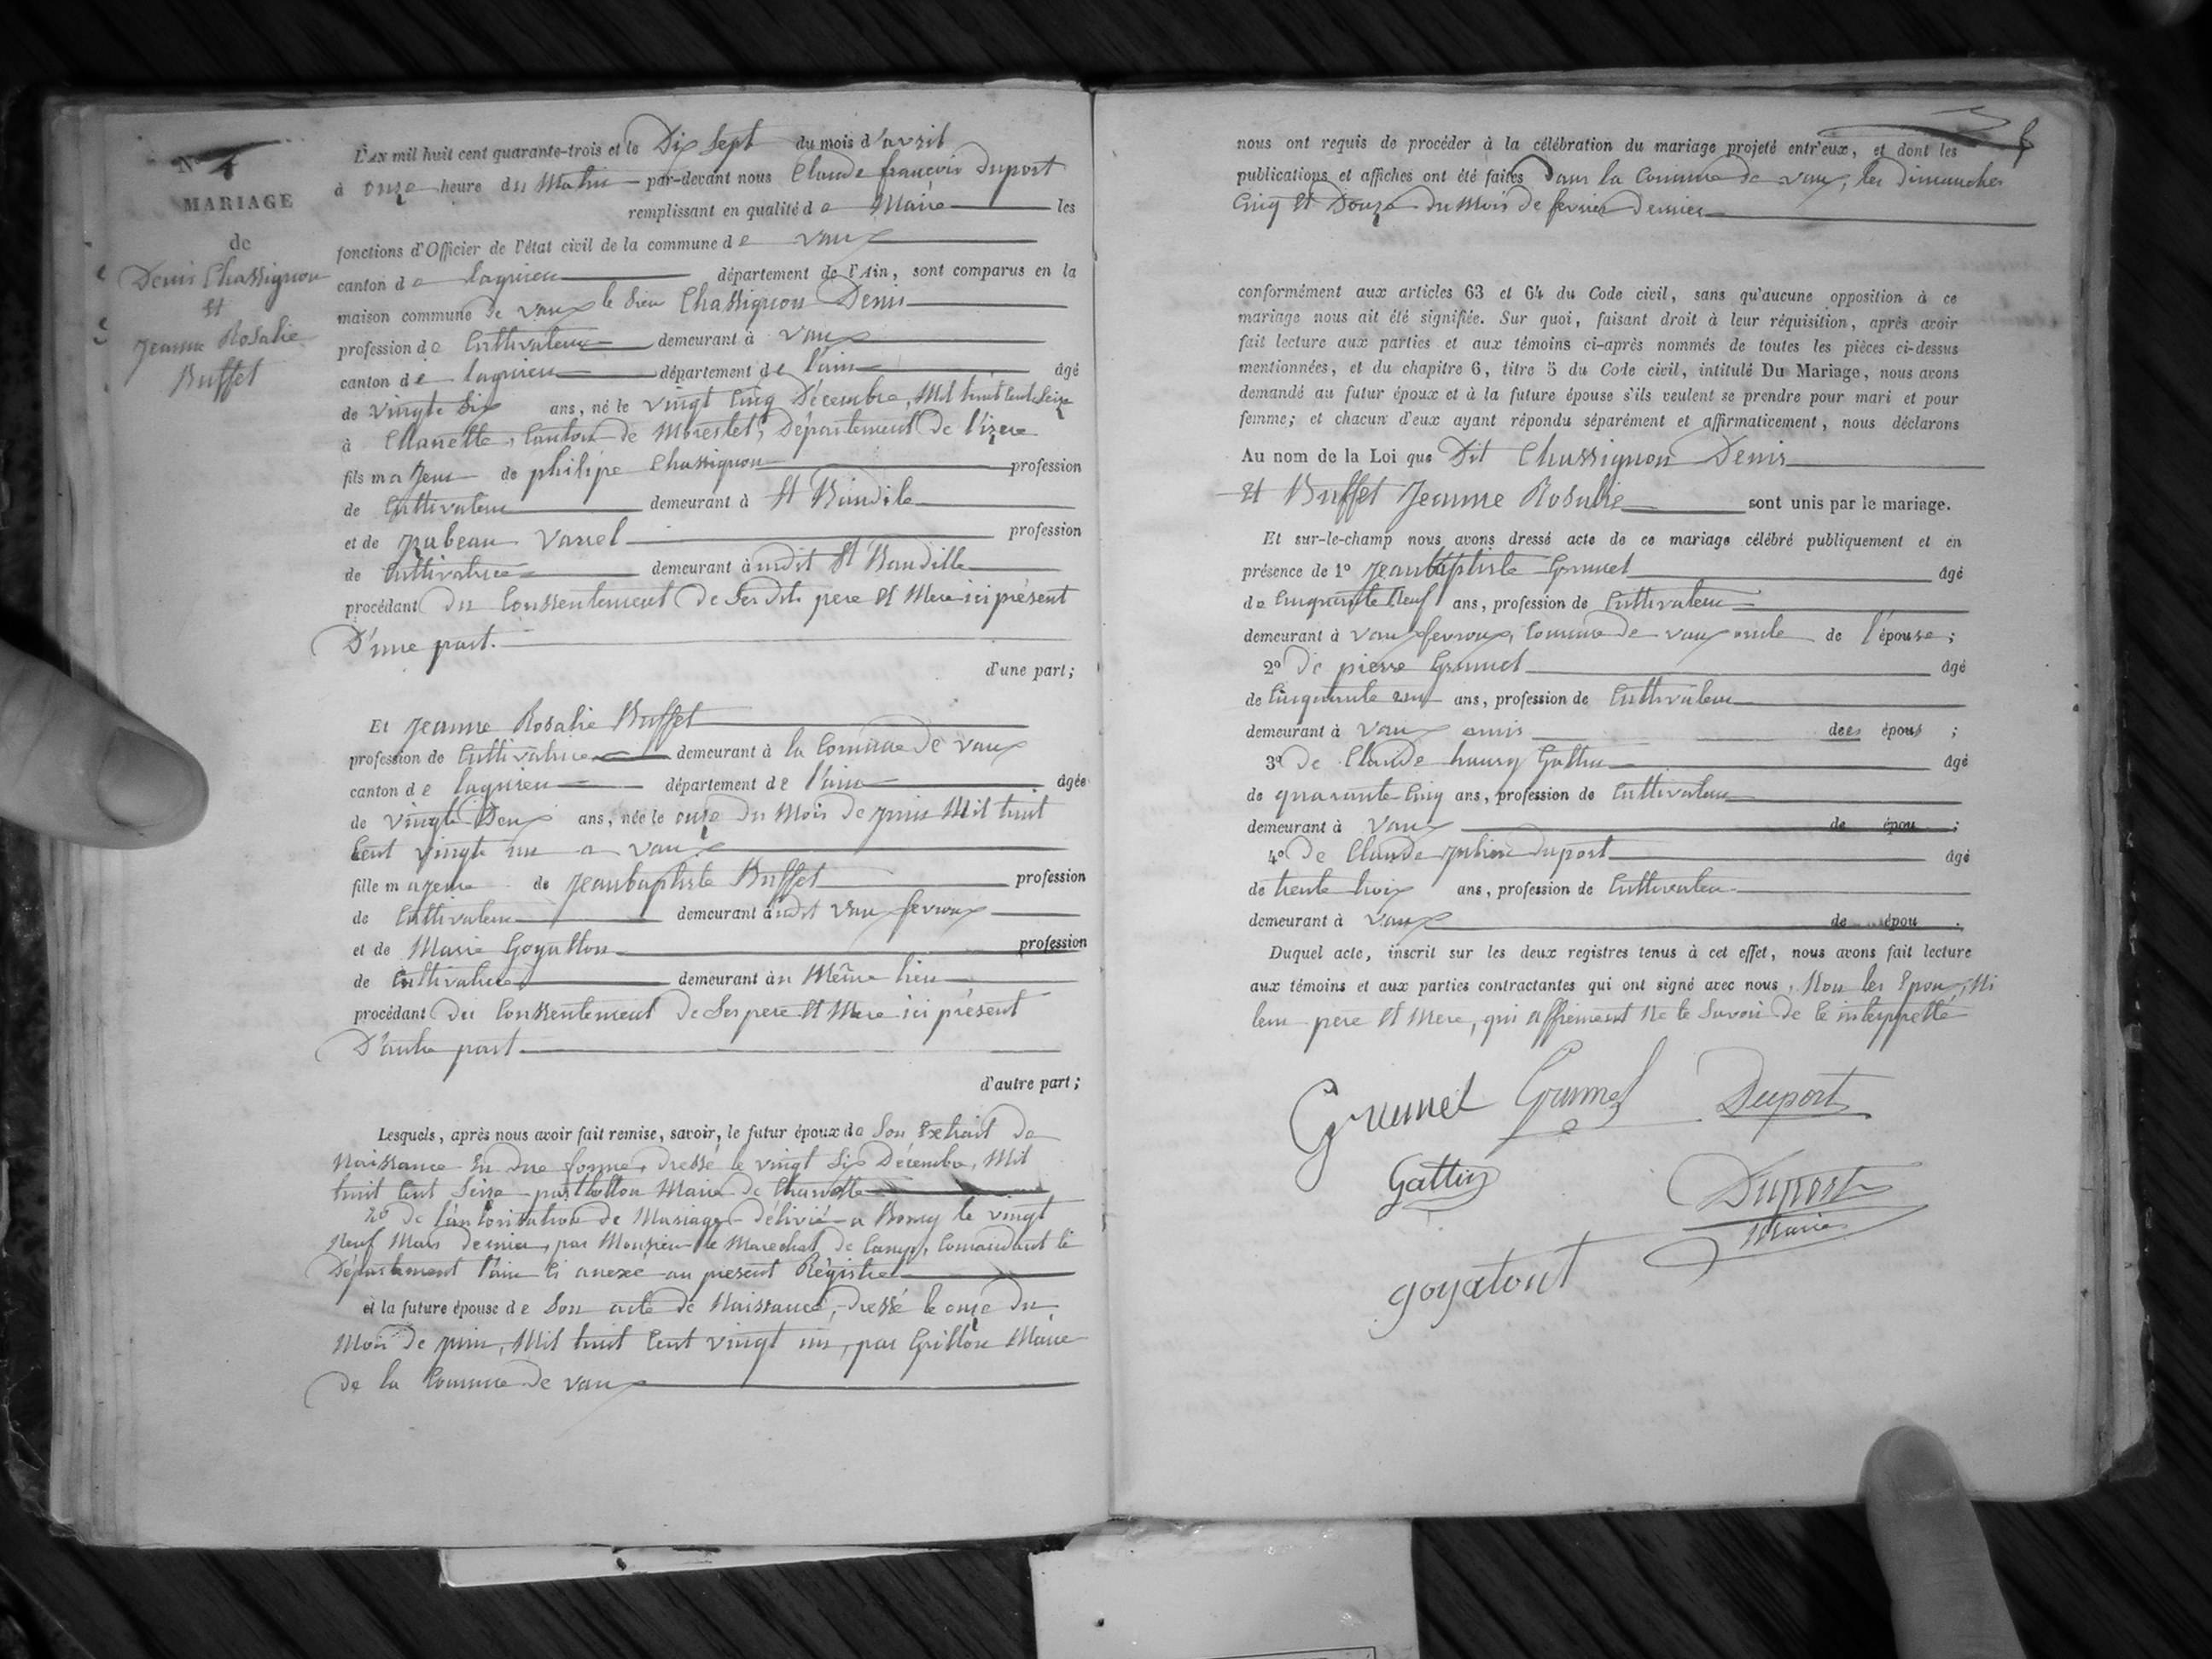 N° 4
MARIAGE
de
Denis Chassignon
et
Jeanne Rosalie
Buffet
L'AN mil huit cent quarante-trois et le Dix Sept du mois d'avril
à onze heure du Matin par-devant nous Claude françois Duport
remplissant en qualité de Maire les
fonctions d'Officier de l'état civil de la commune de vaux
canton de lagnieu département de l'Ain, sont comparus en la
maison commune de vaux le sieur Chassignon Denis
profession de Cultivateur demeurant à vaux
canton de lagnieu département de l'ain âgé
de vingte Six ans, né le vingt Cinq Décembre, Mil huit Cent Seize
à Charette, Canton de Morestel, Département de l'izere
fils majeur de philipe Chassignon profession
de Cultivateur demeurant à St Baudile
et de yzabeau Varrel profession
de Cultivatrice demeurant audit St Baudille
procédant du Conssentement de Ses dits pere et Mere ici présent
D'une part.
d'une part;
Et Jeanne Rosalie Buffet
profession de Cultivatrice demeurant à la Commune de vaux
canton de lagnieu département de l'ain âgée
de vingte Deux ans, née le onze du Mois de juin Mil huit
Cent vingte un a vaux
fille majeure de Jeanbaptiste Buffet profession
de Cultivateur demeurant audit vaux fevroux
et de Marie Goyatton profession
de Cultivatrice demeurant au Même lieu
procédant du Conssentement de Ses pere et Mere ici présent
D'autre part
d'autre part;
Lesquels, après nous avoir fait remise, savoir, le futur époux de Son Extrait de
Naissance En due forme, dressé le vingt Six Décembre, Mil
huit Cent Seize par Maire de Charette
2° de l'autorisation de Mariage délivré a Bourg le vingt
Neuf Mars dernier, par Monsieur le Marechal de Camp, Comandant le
Département l'ain Ci anexé au présent Régistre
et la future épouse de Son acte de Naissance, dressé le onze du
Mois de juin, Mil huit Cent vingt un, par Grillon Maire
de la Commune de vaux
nous ont requis de procéder à la célébration du mariage projeté entr'eux, et dont les
publications et affiches ont été faites Dans la Commune de vaux, les dimanches
Cinq et Douze du Mois de fevrier Dernier
conformément aux articles 63 et 64 du Code civil, sans qu'aucune opposition à ce
mariage nous ait été signifiée. Sur quoi, faisant droit à leur réquisition, après avoir
fait lecture aux parties et aux témoins ci-après nommés de toutes les pièces ci-dessus
mentionnées, et du chapitre 6, titre 5 du Code civil, intitulé Du Mariage, nous avons
demandé au futur époux et à la future épouse s'ils veulent se prendre pour mari et pour
femme; et chacun d'eux ayant répondu séparément et affirmativement, nous déclarons
Au nom de la Loi que Dit Chassignon Denis
et Buffet Jeanne Rosalie sont unis par le mariage.
Et sur-le-champ nous avons dressé acte de ce mariage célébré publiquement et en
présence de 1° Jeanbaptiste Grumel âgé
de Cinquante Neuf ans, profession de Cultivateur
demeurant à vaux fevroux, Commune de vaux oncle de l'épouse;
2° de pierre Grumel âgé
de Cinquante un ans, profession de Cultivateur
demeurant à vaux amis des épous ;
3° de Claude Gattin âgé
de quarante Cinq ans, profession de Cultivateur
demeurant à vaux de épou ;
4° de Claude julien Duport âgé
de trente trois ans, profession de Cultivateur
demeurant à vaux de épou .
Duquel acte, inscrit sur les deux registres tenus à cet effet, nous avons fait lecture
aux témoins et aux parties contractantes qui ont signé avec nous, Non les Epoux, Ni
leur pere et Mere, qui affirment Ne le Savoir de ce interppellé
Grumel Grumel Duport
Gattin Duport
Maire
goyatout